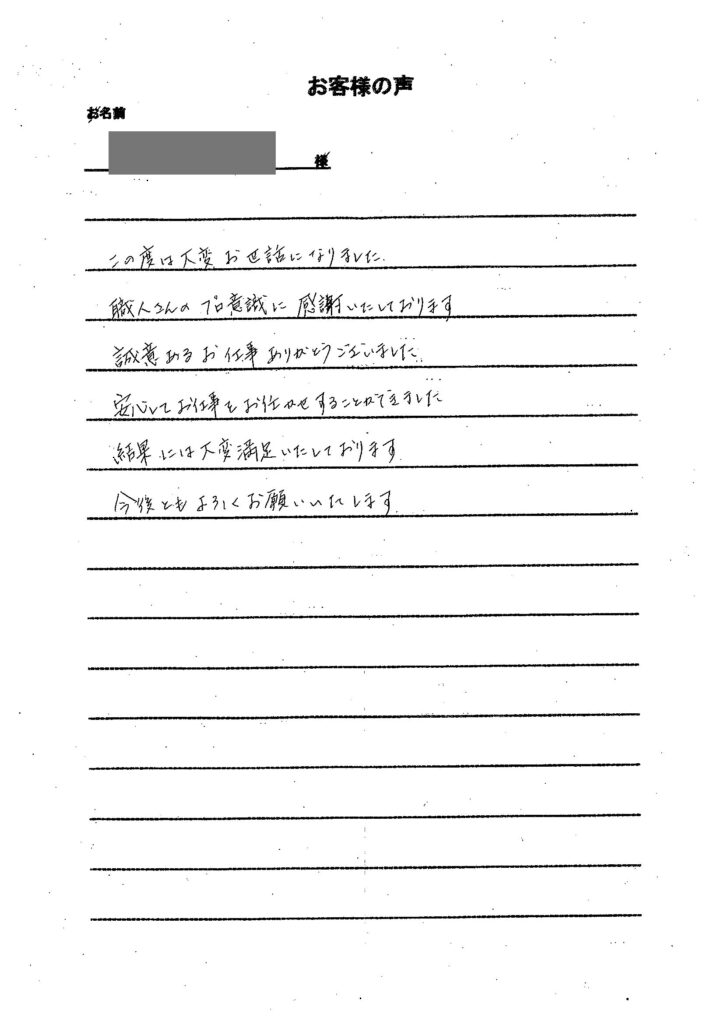 お客様の声
お名前
様
この度は大変お世話になりました.
職人さんのプロ意識に感謝いたしております
誠意あるお仕事ありがとうございました.
安心してお仕事をお任かせすることができました
結果には大変満足いたしております.
今後ともよろしくお願いいたします.